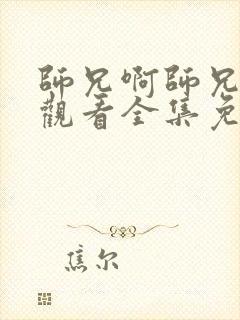 師兄啊師兄
觀看全集免
焦尔